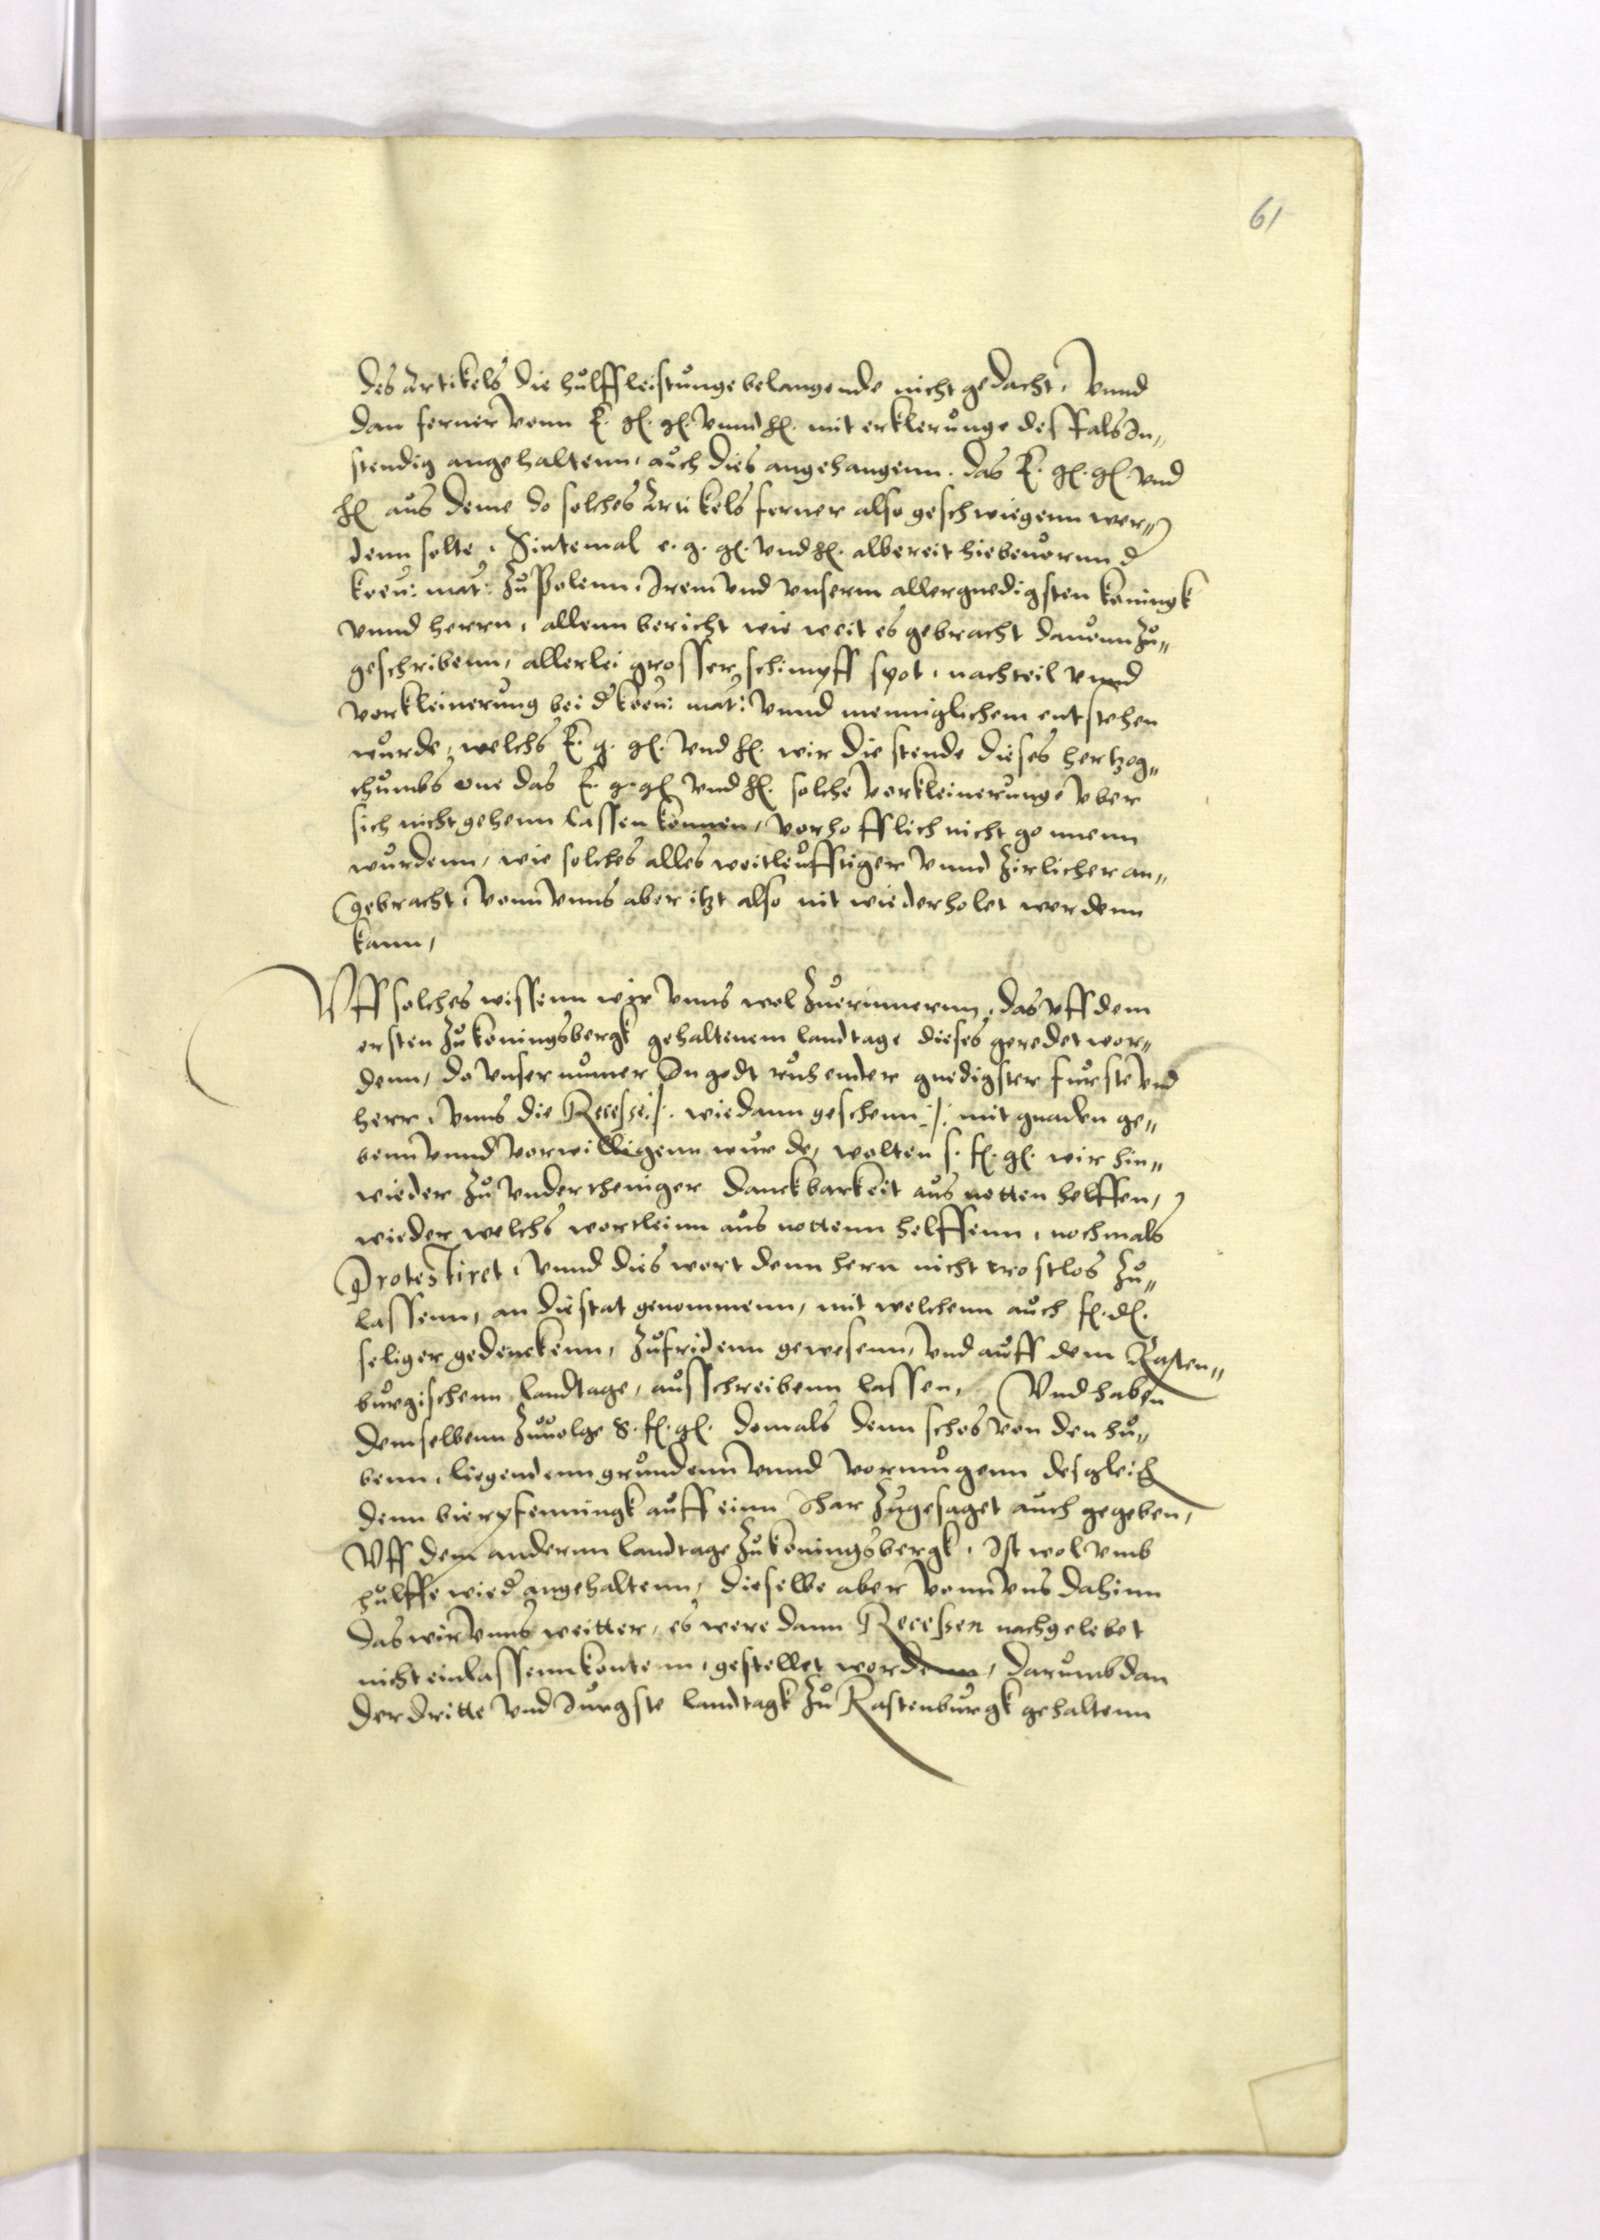 61
des Artikels die hulffleistunge belangende nicht gedacht, Vnnd
dan ferner vonn E. gl. gl. vnnd hl. mit erklerunge desfals In„
stendig angehaltenn, auch dies angehangenn. das E. gl. gl. vnd
hl aus deme do solches Artikels ferner also geschwiegenn wer„
denn solte, Sintemal e. g. gl. vnd hl. albereit hiebeuornn d
koen: mat: zu Polenn, Irem vnd vnserm allergnedigsten koningk
vnnd herrn, allenn bericht wie weit es gebracht dauonn zu„
geschribenn, allerlei grosser schimpff spot, nachteil vnnd
vorkleinerung bei d koen: mat: vnnd menniglichem entstehen
wurde, welchs E. g. gl. vnd hl. wir die stende dieses hertzog„
thumbs one das E. g. gl vnd hl. solche vorkleinerunge vber
sich nicht gehenn lassen konnen, vorhofflich nicht gonnenn
wurdenn, wie solches alles weitleufftiger vnnd zirlicher an„
gebracht, vonn vnns aber itzt also nit wiederholet werdenn
kann,
Vff solches wissenn wir vnns wol zuerinnernn, das vff dem
ersten zu koningsbergk gehaltenem landtage dieses geredet wor„
denn, do vnser numer In godt ruhender gnedigster furste vnd
herr, vnns die Recesse :/: wie dann geschenn :/: mit gnaden ge„
benn vnnd vorwilligenn wurde, wolten s. fl. gl. wir hin„
wieder zu vndertheniger danckbarkeit aus notten helffen,
wieder welchs wortleinn aus nottenn helffenn, nochmals
Protestiret, vnnd dies wort denn hern nicht trostlos zu„
lassenn, an die stat genommenn, mit welchenn auch fl. dl.
seliger gedenckenn, zufridenn gewesenn, vnd auff dem Rasten„
burgischenn landtage, ausschreibenn lassen, Vnd haben
demselbenn zuuolge S. fl. gl. domals denn schos von den hu„
benn, liegendenn grundenn vnnd vormugenn desgleich
denn bierpfenningk auff einn Ihar zugesaget auch gegeben,
Vff dem andernn landtage zu koningsbergk, Ist wol vmb
hulffe wied angehaltenn, dieselbe aber vonn vns dahinn
das wir vnns weitter, es were dann Recessen nachgelebet
nicht einlassenn kontenn, gestellet wordenn, darumb dan
der dritte vnd Jungste landtagk zu Rastenburgk gehaltenn